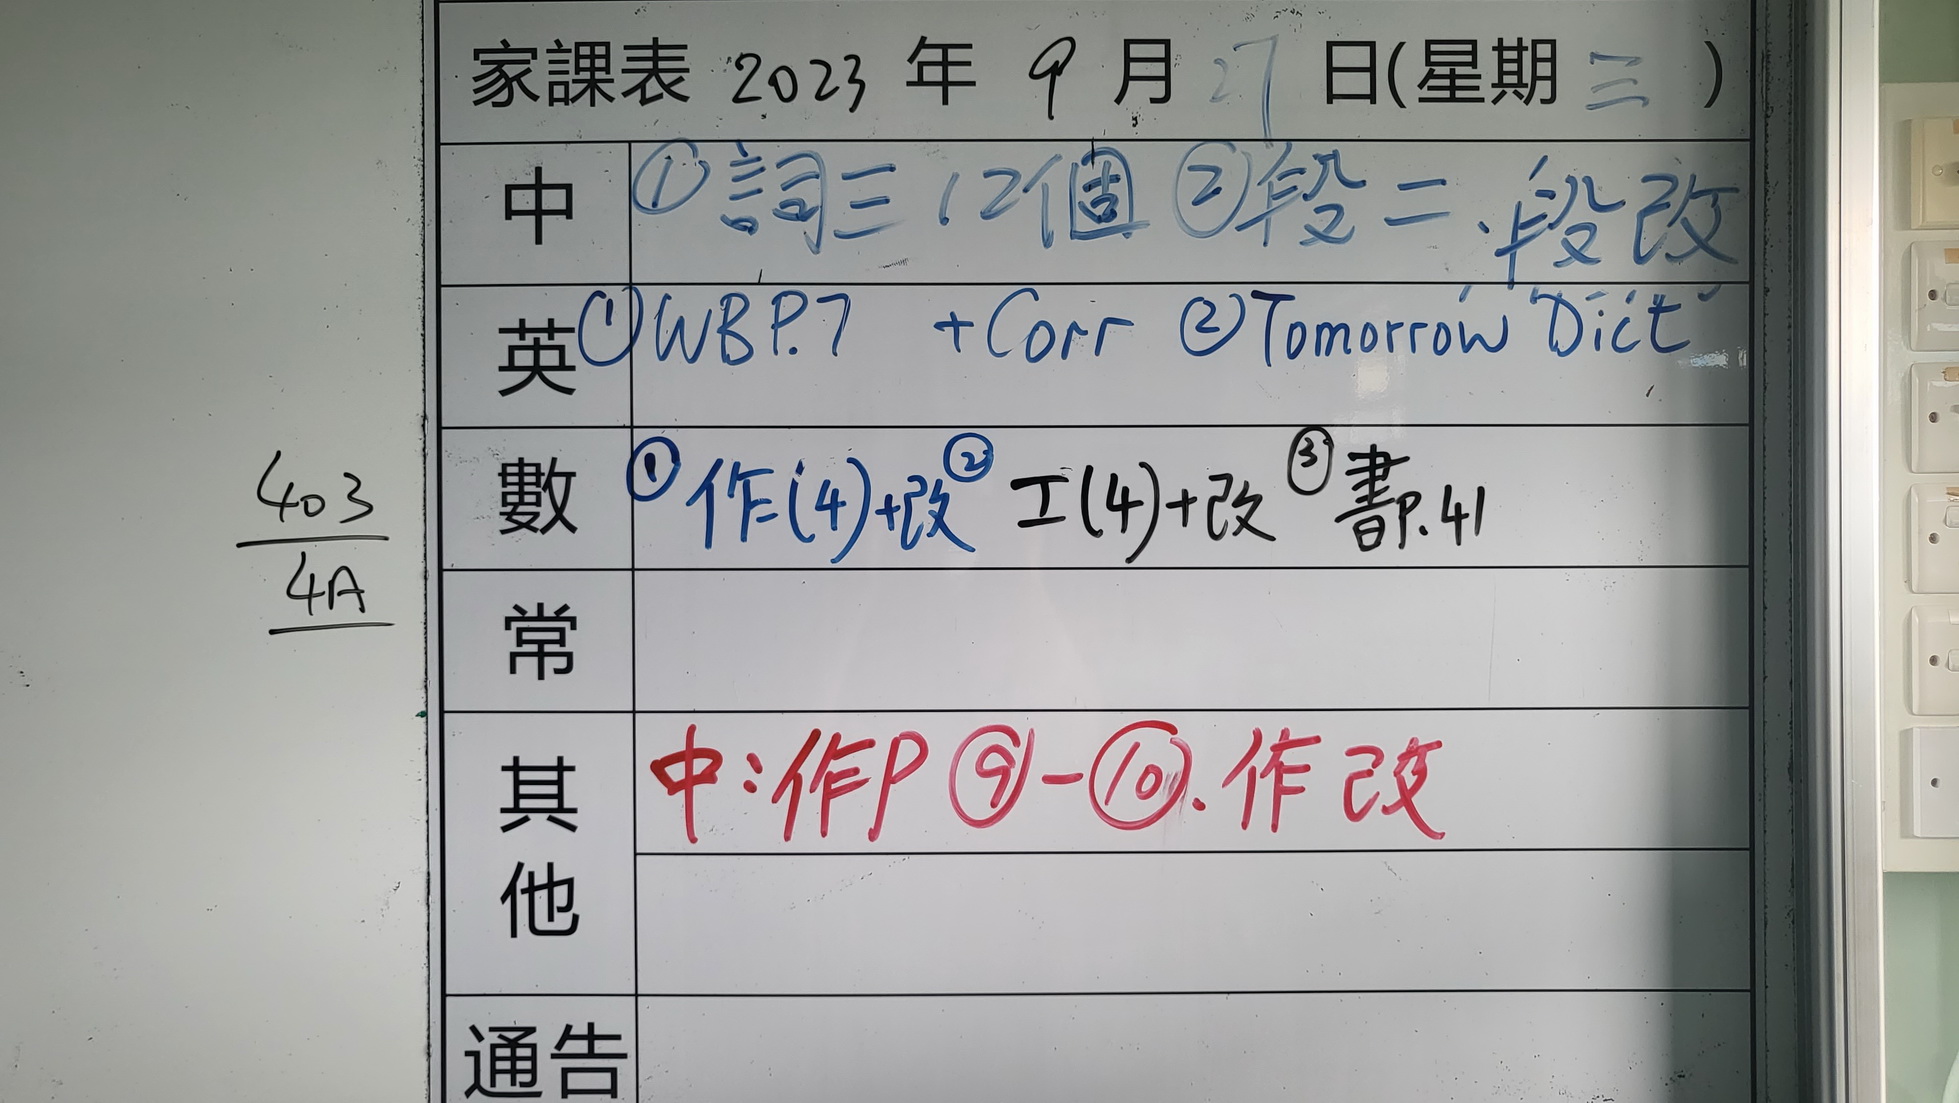 家課表 2023 年 9 月 27 日(星期 三 )
中 ①詞三12個 ②段二、段改
英 ①WBP.7 +Corr ②Tomorrow "Dict"
數 ①作(4)+改 ②工(4)+改 ③書P.41
403
4A
常
其他 中:作P⑨-⑩.作改
通告